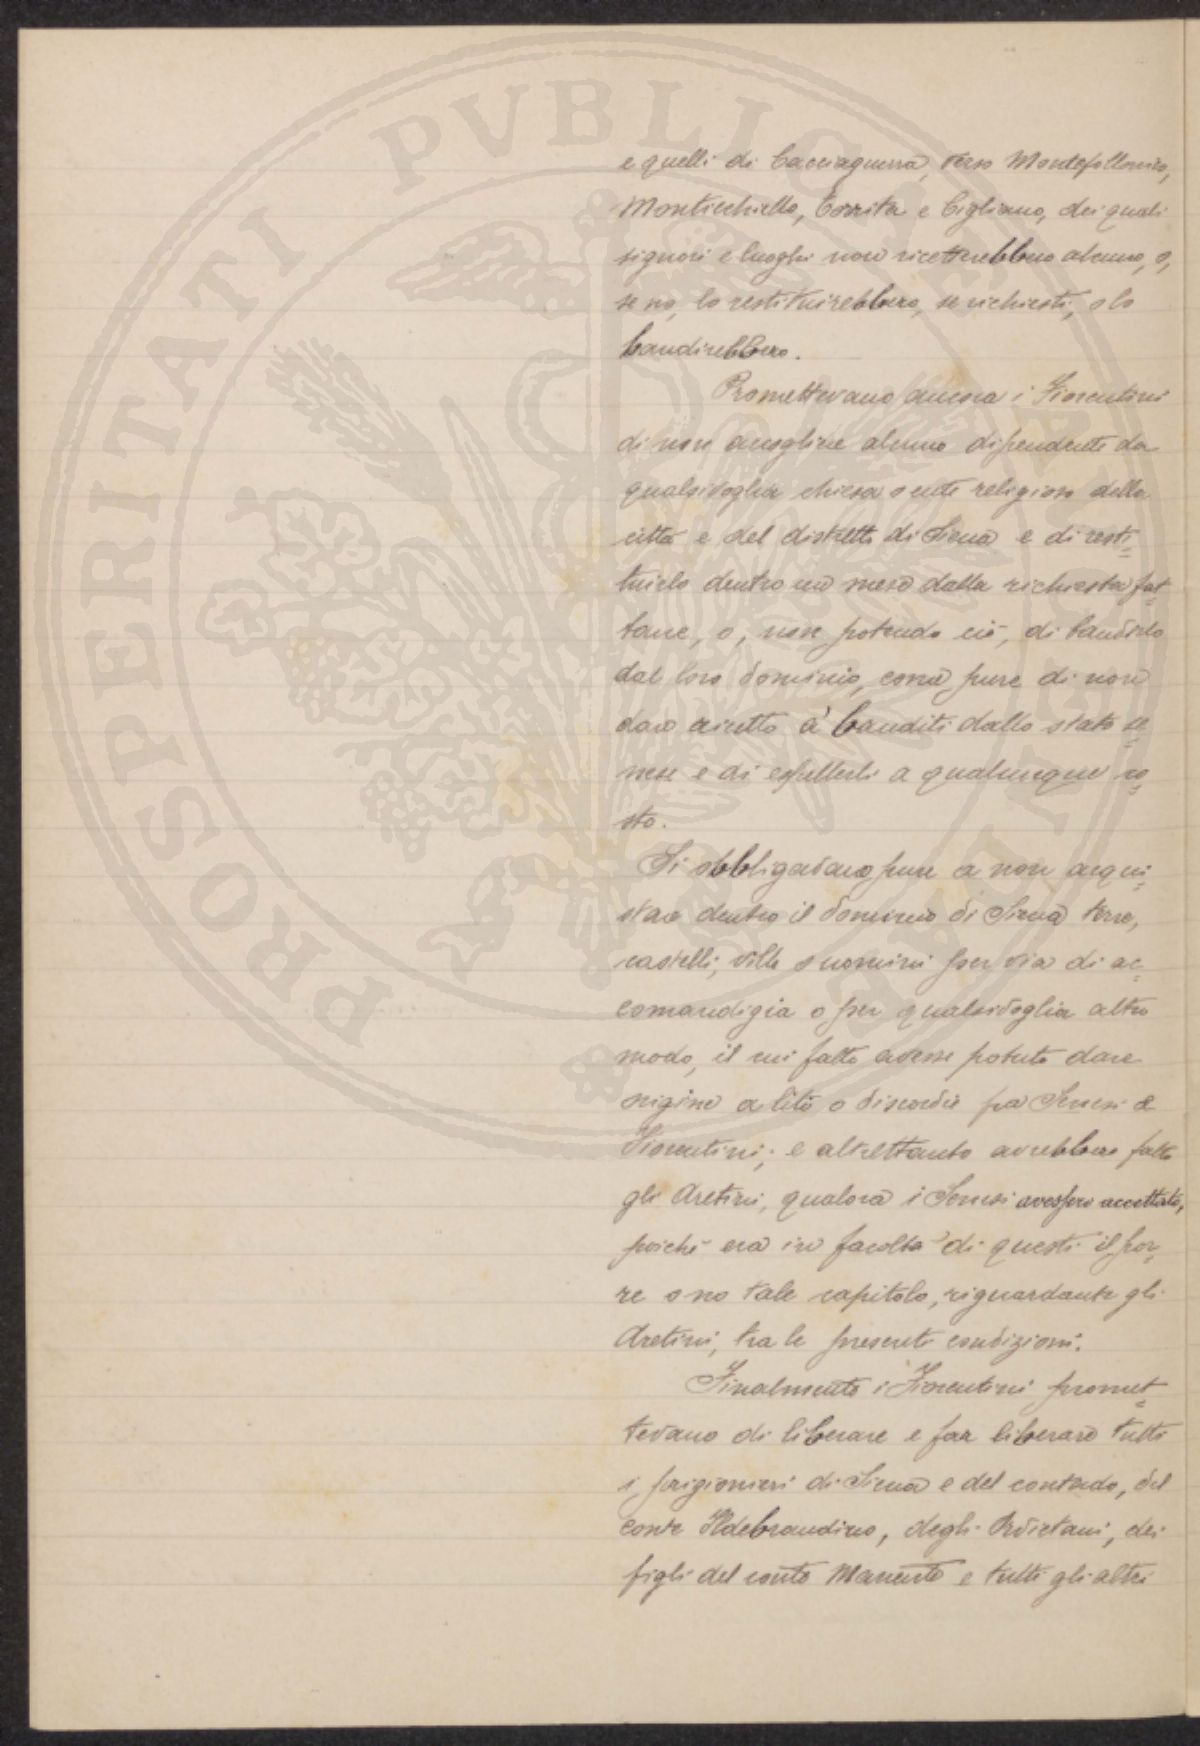 e quelli di Cacciaguerra, verso Montefollonico,
Monticchiello, Torrita e Cigliano, dei quali
signori e luoghi non ricetterebbero alcuno, o,
se no, lo restituirebbero, se richiesti, o lo
bandirebbero.
Promettevano ancora i Fiorentini
di non accogliere alcuno dipendente da
qualsivoglia chiesa o ente religioso della
città e del distretto di Siena e di resti=
tuirlo dentro un mese dalla richiesta fat=
tane, o, non potendo ciò, di bandirlo
dal loro dominio, come pure di non
dare ricetto a' banditi dallo stato se=
nese e di espellerli a qualunque co=
sto.
Si obbligavano pure a non acqui=
stare dentro il dominio di Siena terre,
castelli, ville o uomini per via di ac=
comandigia o per qualsivoglia altro
modo, il cui fatto avesse potuto dare
origine a liti o discordie fra Senesi e
Fiorentini; e altrettanto avrebbero fatto
gli Aretini, qualora i Senesi avessero accettato,
poiché era in facoltà di questi il por=
re o no tale capitolo, riguardante gli
Aretini, tra le presenti condizioni.
Finalmente i Fiorentini promet=
tevano di liberare e far liberare tutti
i prigionieri di Siena e del contado, del
conte Ildebrandino, degli Orvietani, dei
figli del conte Manente e tutti gli altri
PROSPERITATI PVBLICAE